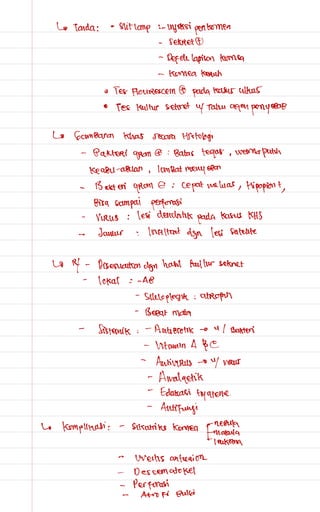 ↳ Tanda : - Slit lamp :- injeksi perikornea
- Sekret ⊕
- Defek lapisan kornea
- Kornea keruh
• Tes Flourescein ⊕ pada kasus ulkus
• Tes kultur sekret u/ tahu agen penyebab
↳ Gambaran khas secara Histologi
- Bakteri gram ⊕ : Batas tegas, warna putih
keabu-abuan, lambat menyebar
- Bakteri gram ⊖ : cepat meluas, Hipopion +,
Bisa sampai perforasi
- Virus : lesi dendritik pada kasus
- Jamur : Infiltrat dgn lesi satelite
↳ R/ - Disesuaikan dgn hasil kultur sekret
- lokal : - AB
- Sikloplegik : atropin
- Bebat mata
- Sistemik : - Antibiotik → u/ Bakteri
- Vitamin A & C
- Antivirus → u/ virus
- Analgetik
- Edukasi hygiene
- Antifungi
↳ Komplikasi : - Sikatriks kornea nebula
makula
leukoma
- Uveitis anterior
- Descematokel
- Perforasi
- Atrofi Bulbi